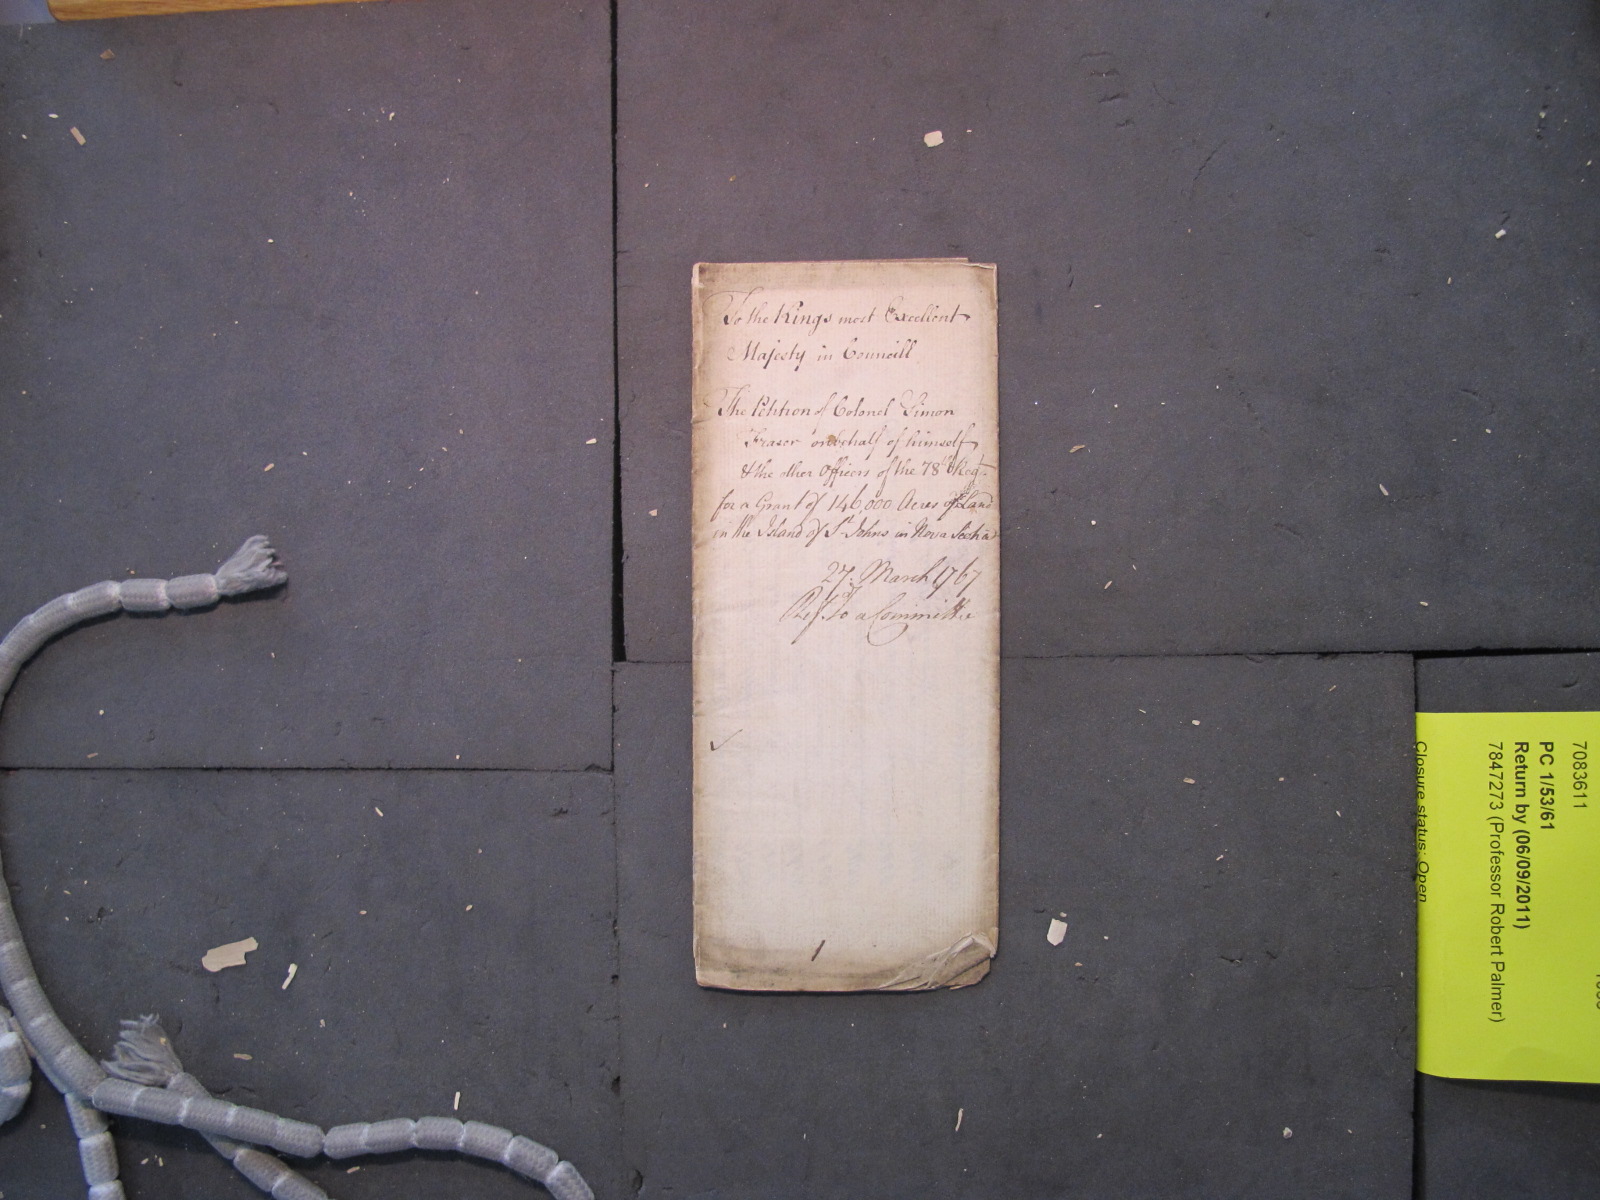 To the Kings most Excellent
Majesty in Councill
The Petition of Colonel Simon
Fraser on behalf of himself
& the other Officers of the 78th Regt
for a Grant of 146,000 Acres of Land
in the Island of St Johns in Nova Scotia
27. March 1767
Refd to a Committee
1
7083611
PC 1/53/61
Return by (06/09/2011)
7847273 (Professor Robert Palmer)
Closure status: Open